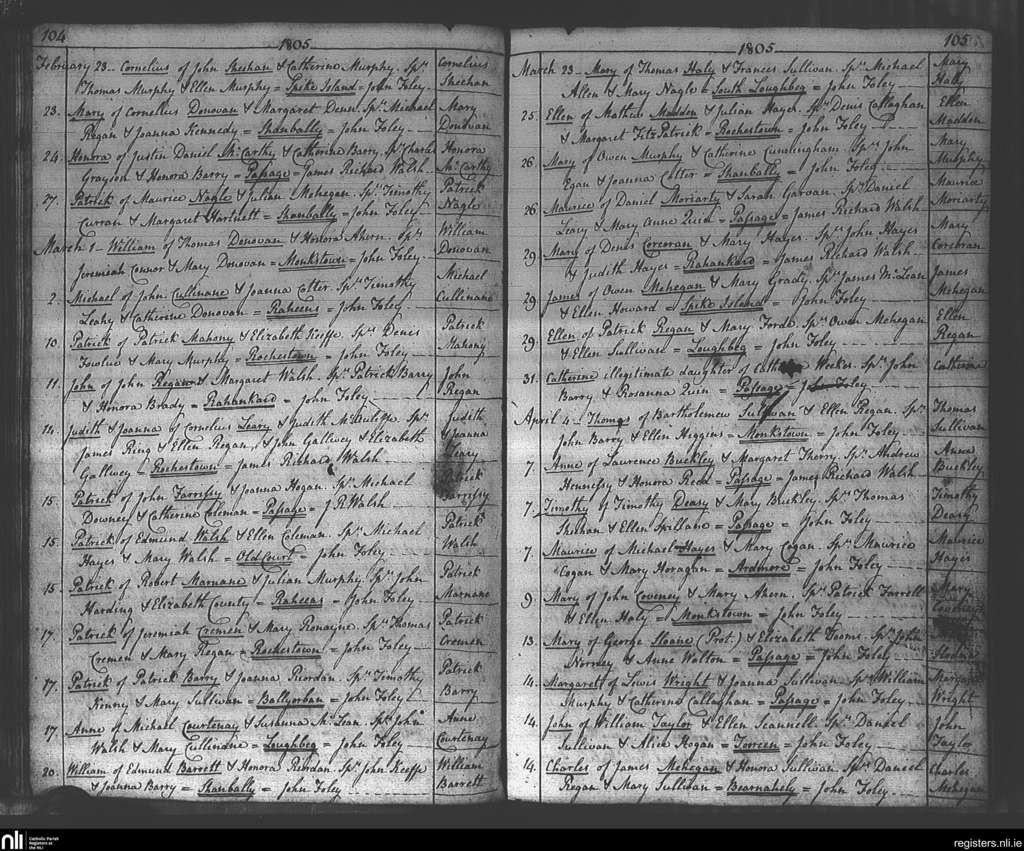 104
1805
February 23 — Cornelius of John Sheehan & Catherine Murphy. Sprs Cornelius
Thomas Murphy & Ellen Murphy = Spike Island = John Foley — Sheehan
23. Mary of Cornelius Donovan & Margaret Deneen. Sprs Michael Mary
Regan & Joanna Kennedy = Shanbally = John Foley — Donovan
24. Honora of Justin Daniel McCarthy & Catherine Barry. Sprs Charles Honora
Grayson & Honora Barry = Passage = James Richard Walsh — McCarthy
27. Patrick of Maurice Nagle & Julian Mehegan. Sprs Timothy Patrick
Curran & Margaret Hartnett = Shanbally = John Foley — Nagle
March 1 — William of Thomas Donovan & Honora Ahern. Sprs William
Jeremiah Connor & Mary Donovan = Monkstown = John Foley — Donovan
2. Michael of John Cullinane & Joanna Cotter. Sprs Timothy Michael
Leahy & Catherine Donovan = Raheens = John Foley — Cullinane
10. Patrick of Patrick Mahony & Elizabeth Keeffe. Sprs Denis Patrick
& Mary Murphy = Rochestown = John Foley — Mahony
11. John of John Regan & Margaret Walsh. Sprs Patrick Barry John
& Honora Brady = Rahankard = John Foley — Regan
14. Judith & Joanna of Cornelius Leary & Judith McAuliffe. Sprs Judith
James Ring & Ellen Regan, & John Gallwey & Elizabeth & Joanna
Gallwey = Rochestown = James Richard Walsh — Leary
15. Patrick of John & Joanna Hogan. Sprs Michael Patrick
Downey & Catherine Coleman = Passage = J R Walsh
15. Patrick of Edmund Walsh & Ellen Coleman. Sprs Michael Patrick
Hayes & Mary Walsh = Oldcourt = John Foley — Walsh
15 Patrick of Robert Marnane & Julian Murphy. Sprs John Patrick
Harding & Elizabeth County = Raheens = John Foley — Marnane
17. Patrick of Jeremiah Cremen & Mary Ronayne. Sprs Thomas Patrick
Cremen & Mary Regan = Rochestown = John Foley — Cremen
17. Patrick of Patrick Barry & Joanna Riordan. Sprs Timothy Patrick
& Mary Sullivan = Ballyorban = John Foley — Barry
17. Anne of Michael Courtenay & Sushanna McLean. Sprs John Anne
Walsh & Mary Cullinane = Loughbeg = John Foley — Courtenay
20. William of Edmund Barrett & Honora Riordan. Sprs John Keeffe William
& Joanna Barry = Shanbally = John Foley — Barrett
105
1805
March 23 — Mary of Thomas Haly & Frances Sullivan. Sprs Michael Mary
Allen & Mary Nagle = South Loughbeg = John Foley — Haly
25. Ellen of Mathew Madden & Julian Hayes. Sprs Denis Callaghan Ellen
& Margaret FitzPatrick = Rochestown = John Foley — Madden
26. Mary of Owen Murphy & Catherine Cunningham. Sprs John Mary
Egan & Joanna Cotter = Shanbally = John Foley — Murphy
26 Maurice of Daniel Moriarty & Sarah Garvan. Sprs Daniel Maurice
Leary & Mary Anne Quin = Passage = James Richard Walsh Moriarty
29 Mary of Denis Corcoran & Mary Hayes. Sprs John Hayes Mary
& Judith Hayes = Rahankard = James Richard Walsh — Corcoran
29 James of Owen Mehegan & Mary Grady. Sprs James McLean James
& Ellen Howard = Spike Island = John Foley — Mehegan
29. Ellen of Patrick Regan & Mary Forde. Sprs Owen Mehegan Ellen
& Ellen Sullivan = Loughbeg = John Foley — Regan
31. Catherine illegitimate daughter of Weekes. Sprs John Catherine
Barry & Rosanna Quin = Passage = John Foley.
April 4 — Thomas of Bartholemew Sullivan & Ellen Regan. Sprs Thomas
John Barry & Ellen Higgins = Monkstown = John Foley — Sullivan
7. Anne of Lawrence Buckley & Margaret Therry. Sprs Andrew Anna
Hennessy & Honora Reed = Passage = James Richard Walsh Buckley
7. Timothy of Timothy Deasy & Mary Buckley. Sprs Thomas Timothy
Sheehan & Ellen Skillane = Passage = John Foley — Deasy
7 Maurice of Michael Hayes & Mary Cogan. Sprs Maurice Maurice
Cogan & Mary Horagan = Ardmore = John Foley — Hayes
9. Mary of John Coveney & Mary Ahern. Sprs Patrick Farrell Mary
& Ellen Haly = Monkstown = John Foley — Coveney
13. Mary of George Sloane (Prot.) & Elizabeth Tooms. Sprs John
& Anne Walton = Passage = John Foley
14. Margaret of Lewis Wright & Joanna Sullivan. Sprs William Margaret
Murphy & Catherine Callaghan = Passage = John Foley. Wright
14. John of William Taylor & Ellen Scannell. Sprs Daniel John
Sullivan & Alice Hogan = Torreen = John Foley — Taylor
14. Charles of James Mehegan & Honora Sullivan. Sprs Daniel Charles
Regan & Mary Sullivan = Bearnahely = John Foley — Mehegan
nli
Catholic Parish
Registers at
the NLI
registers.nli.ie